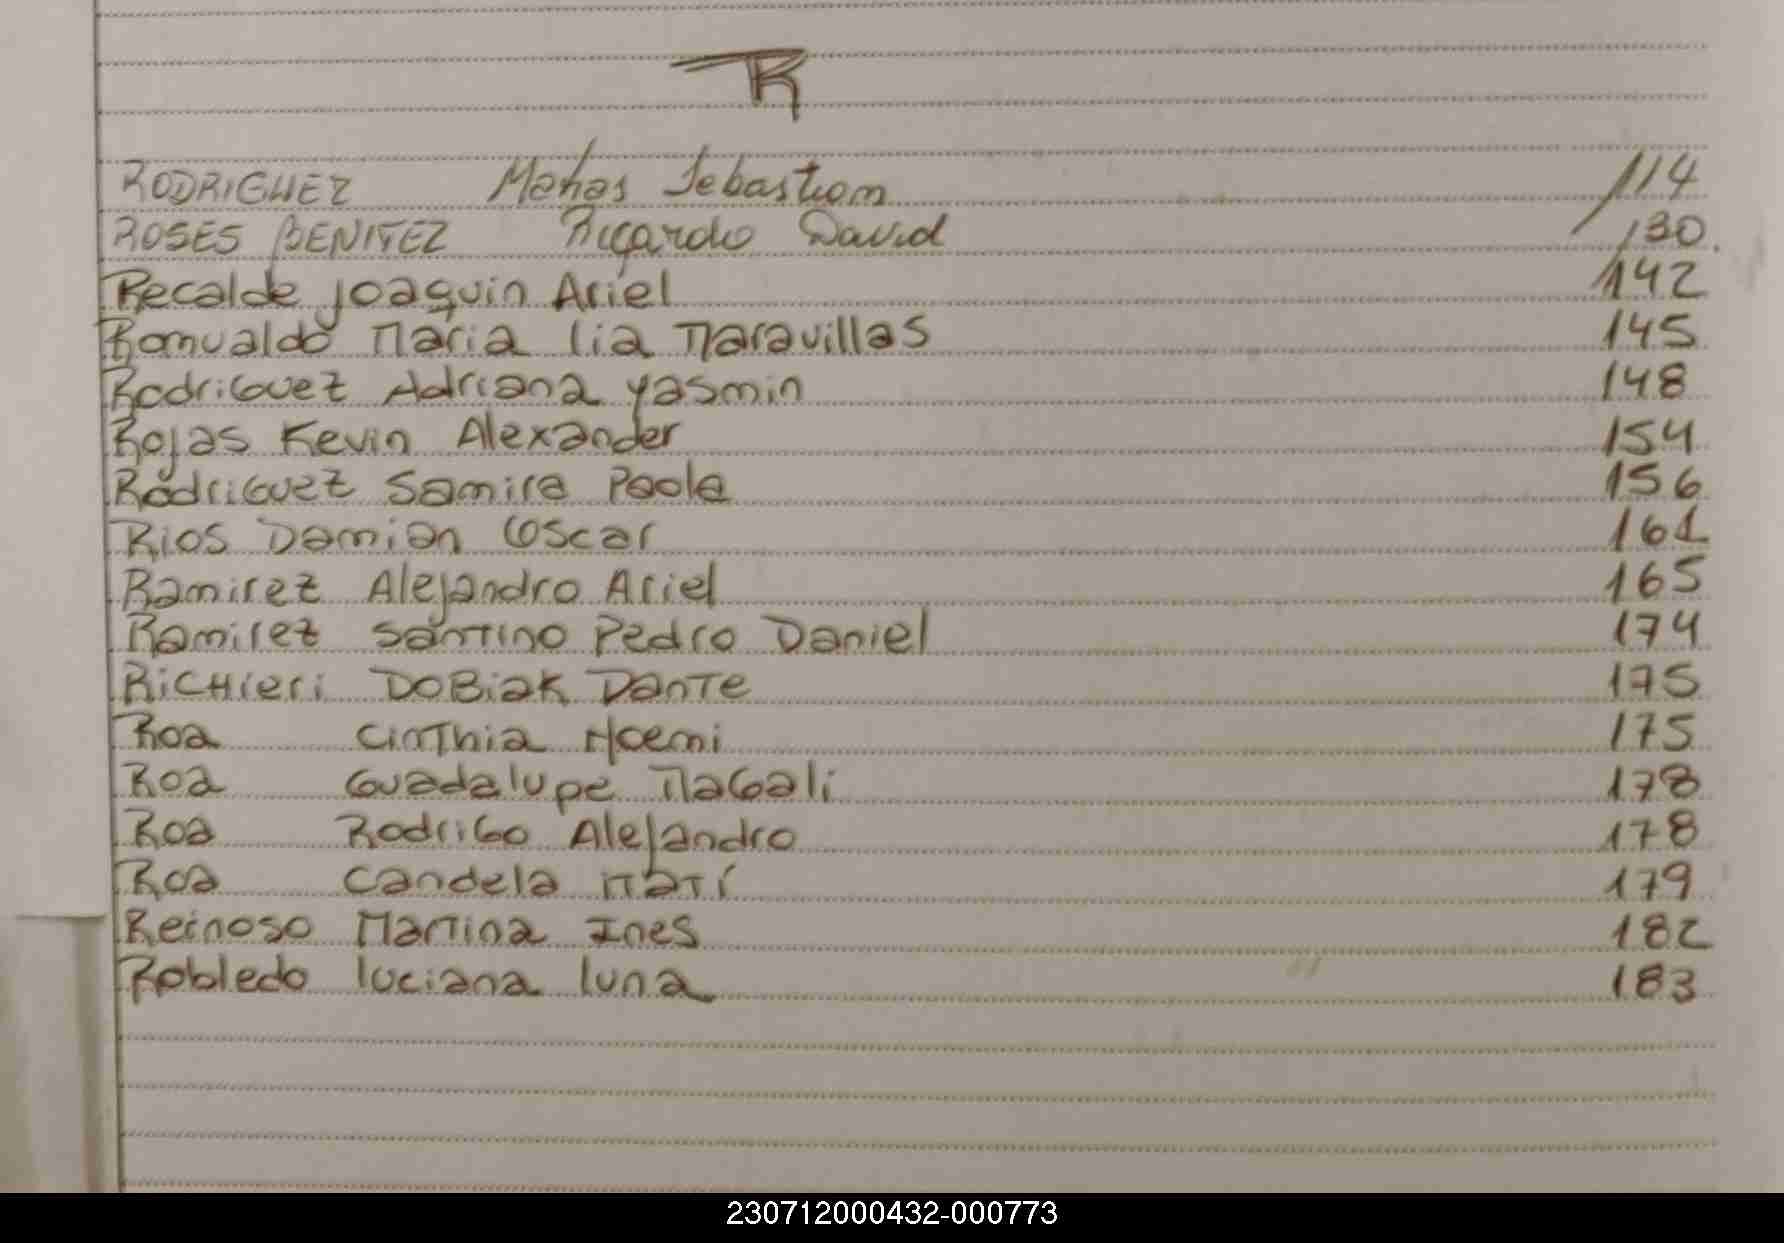 R
RODRIGUEZ Matias Sebastian 114
ROSES BENITEZ Ricardo David 130
Recalde Joaquin Ariel 142
Romualdo Maria lia Maravillas 145
Rodriguez Adriana Yasmin 148
Rojas Kevin Alexander 154
Rodriguez Samira Paola 156
Rios Damian Oscar 161
Ramirez Alejandro Ariel 165
Ramirez Santino Pedro Daniel 174
Richieri Dobiak Dante 175
Roa Cinthia Noemi 175
Roa Guadalupe Magali 178
Roa Rodrigo Alejandro 178
Roa Candela Itatí 179
Reinoso Martina Ines 182
Robledo luciana luna 183
230712000432-000773